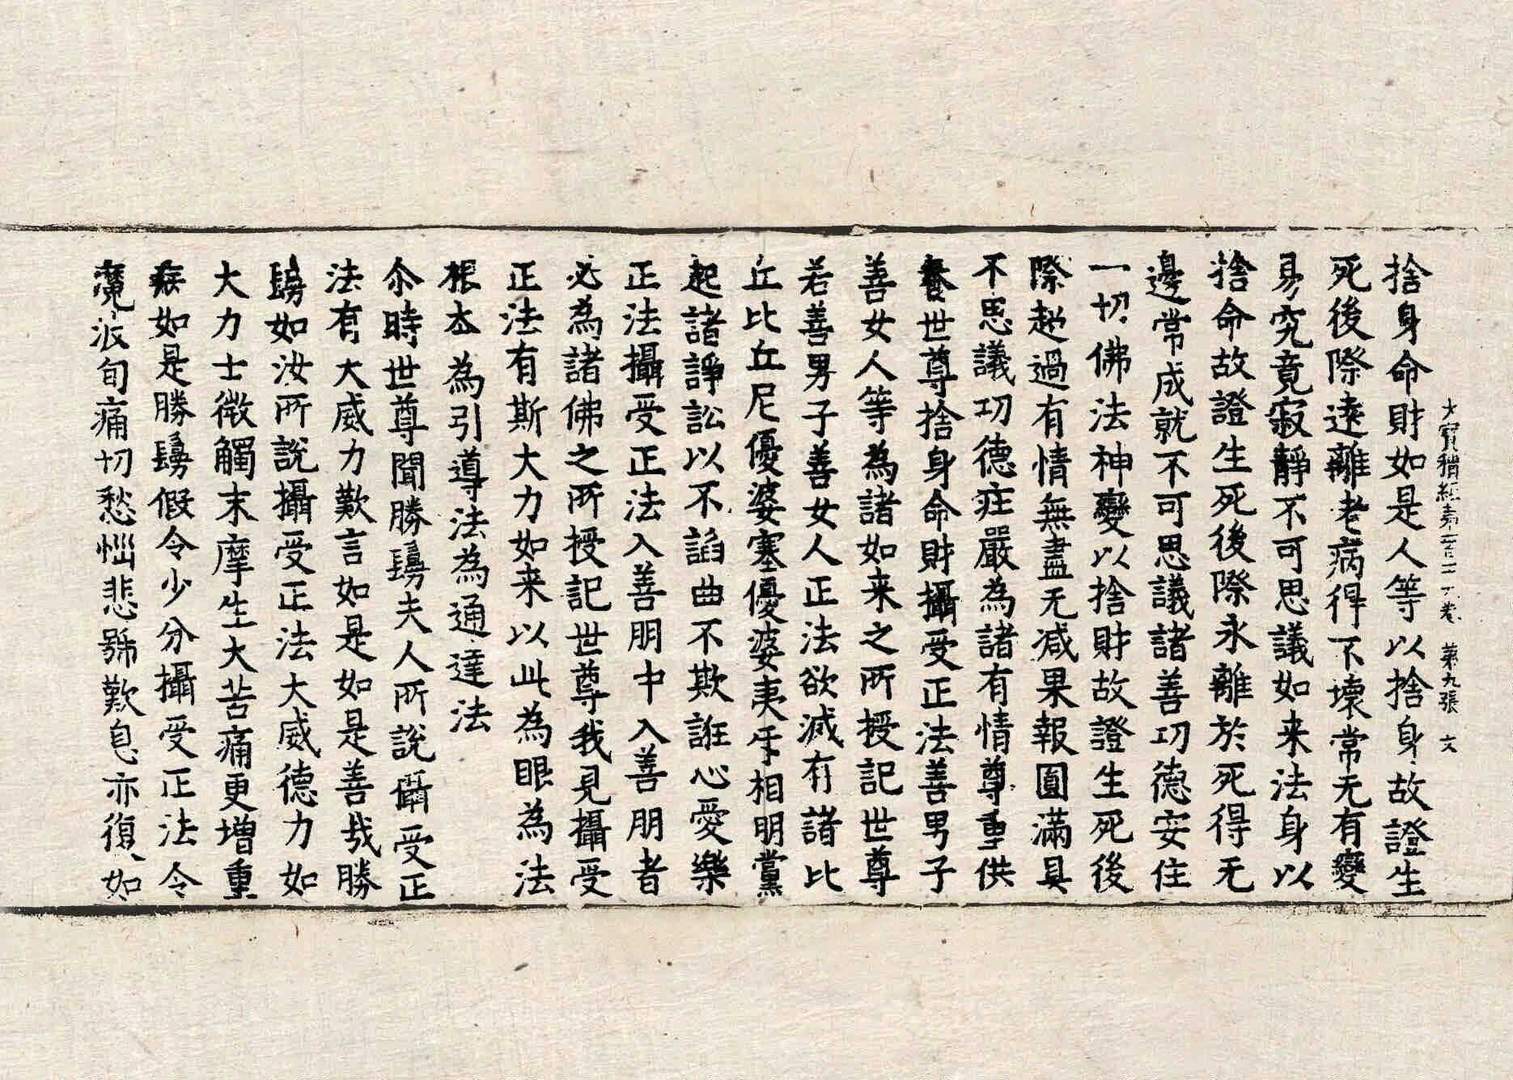 大寳積經第一百一十九卷 第九張 文
捨身命財如是人等以捨身故證生
死後際遠離老病得不壞常无有變
易究竟寂靜不可思議如来法身以
捨命故證生死後際永離於死得无
邊常成就不可思議諸善功德安住
一切佛法神變以捨財故證生死後
際超過有情無盡无減果報圓滿具
不思議功德莊嚴為諸有情尊重供
養世尊捨身命財攝受正法善男子
善女人等為諸如来之所授記世尊
若善男子善女人正法欲滅有諸比
丘比丘尼優婆塞優婆夷㸦相朋黨
起諸諍訟以不謟曲不欺誑心愛樂
正法攝受正法入善朋中入善朋者
必為諸佛之所授記世尊我見攝受
正法有斯大力如来以此為眼為法
根本為引導法為通達法
尒時世尊聞勝鬘夫人所說攝受正
法有大威力歎言如是如是善哉勝
鬘如汝所說攝受正法大威德力如
大力士微觸末摩生大苦痛更增重
病如是勝鬘假令少分攝受正法令
魔波旬痛切愁惱悲號歎息亦復如